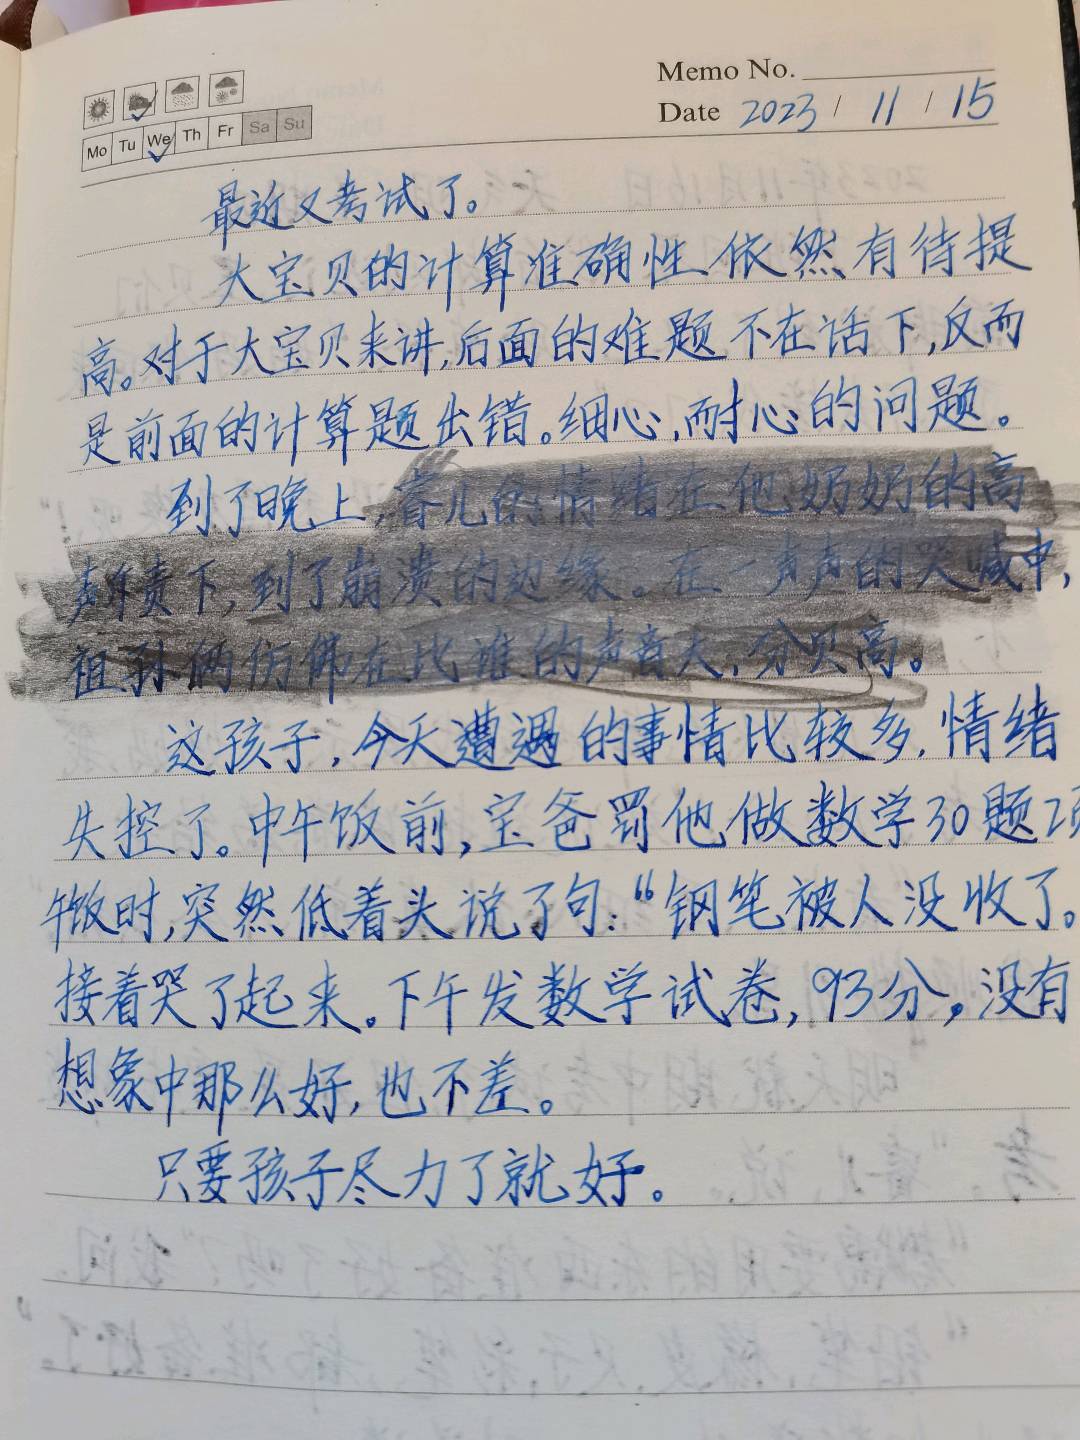 Memo No.
Date 2023 / 11 / 15
Mo Tu We Th Fr Sa Su
最近又考试了。
大宝贝的计算准确性依然有待提
高。对于大宝贝来讲,后面的难题不在话下,反而
是前面的计算题出错。细心,耐心的问题。
到了晚上,睿儿的情绪在他奶奶的高
声斥责下,到了崩溃的边缘。在一声声的哭喊中,
祖孙俩仿佛在比谁的声音大,分贝高。
这孩子,今天遭遇的事情比较多,情绪
失控了。中午饭前,宝爸罚他做数学30题2页
午饭时,突然低着头说了句:“钢笔被人没收了。
接着哭了起来。下午发数学试卷,93分。没有
想象中那么好,也不差。
只要孩子尽力了就好。